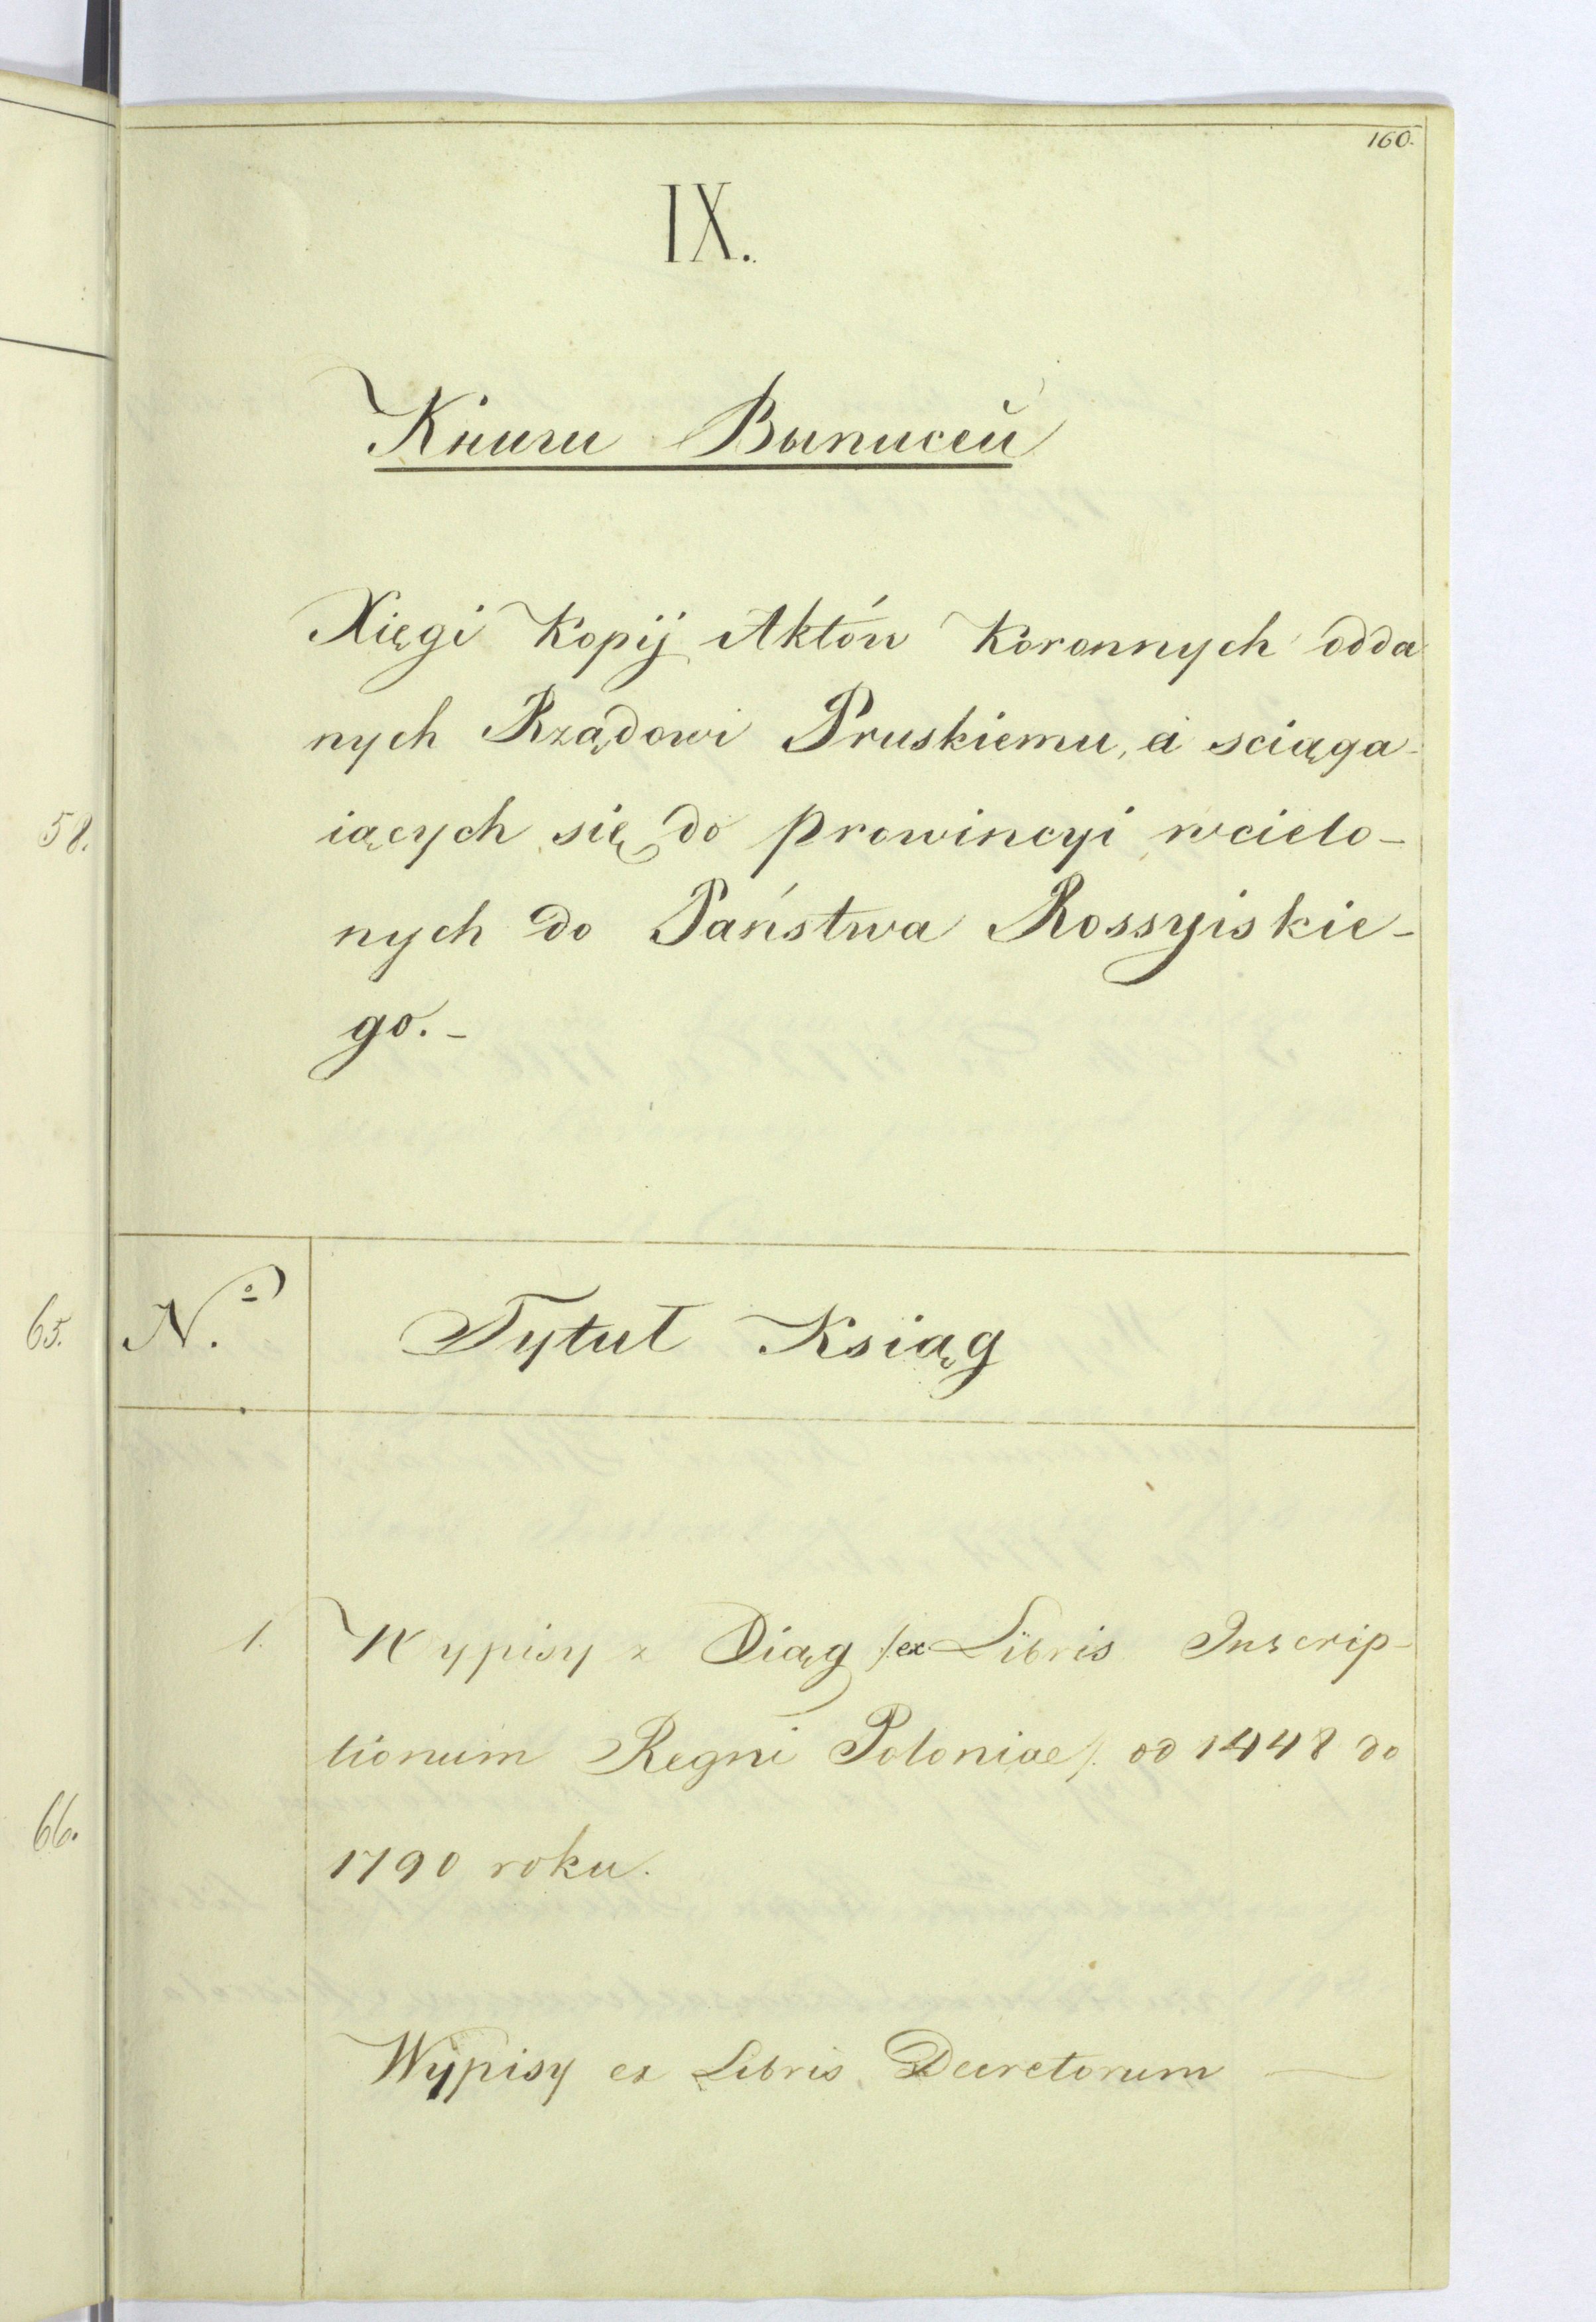 160.
IX.
Книги Выписей
Xięgi Kopij Aktów Koronnych odda
nych Rządowi Pruskiemu, a sciąga-
iących się do prowincyi wcielo-
nych do Państwa Rossyiskie-
go.-
58.
65.
66.
N.o Tytuł Ksiąg
1. Wypisy z Xiąg /:ex Libris Inscrip-
tionum Regni Poloniae/. od 1448 do
1790 roku.
Wypisy ex Libris Decretorum —